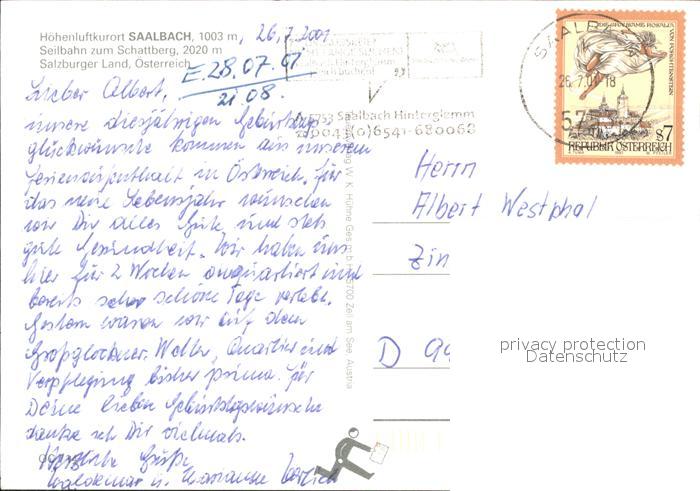 Höhenluftkurort SAALBACH, 1003 m, 26.7.2001
Seilbahn zum Schattberg, 2020 m
Salzburger Land, Österreich
E. 28.07.01
21.08.
Lieber Albert,
unsere diesjährigen Geburtstags
glückwünsche kommen aus unserem
Ferienaufenthalt in Österreich. Für
das neue Lebensjahr wünschen
wir Dir alles Gute und stets
gute Gesundheit. Wir haben uns
hier für 2 Wochen einquartiert und
bereits schon schöne Tage verlebt.
Gestern waren wir auf dem
Großglockner. Wetter, Quartier und
Verpflegung bisher prima. Für
Deine lieben Geburtstagswünsche
danke ich Dir vielmals.
Herzliche Grüße
Waldemar u. Marianne
5753 Saalbach Hinterglemm
0043(0)6541-680068
SAALBA
26.7.01-18
57
DIE
REPUBLIK ÖSTERREICH
S7
Verlag W. K. Höhne Ges. b. H. 5700 Zell am See Austria
Herrn
Albert Westphal
Zin
D 99
privacy protection
Datenschutz